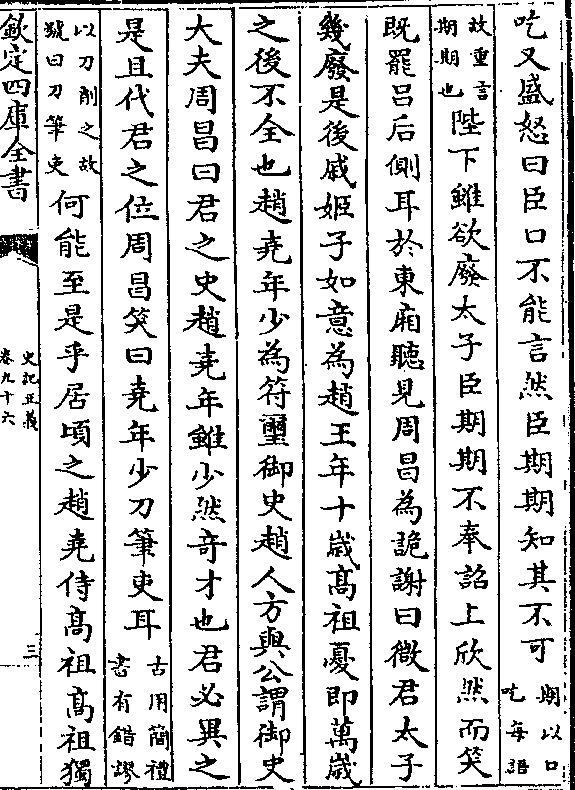 吃又盛怒曰臣口不能言然臣期期知其不可期以口吃每語
故重言期期也陛下雖欲廢太子臣期期不奉詔上欣然而笑
既罷吕后側耳於東廂聽見周昌為詭謝曰微君太子
幾廢是後戚姬子如意為趙王年十歲髙祖憂即萬歲
之後不全也趙堯年少為符璽御史趙人方與公謂御史
大夫周昌曰君之史趙堯年雖少然奇才也君必異之
是且代君之位周昌笑曰堯年少刀筆吏耳古用簡禮書有錯謬
以刀削之故號曰刀筆吏何能至是乎居頃之趙堯侍髙祖髙祖獨
欽定四庫全書
史記正義
卷九十六
三